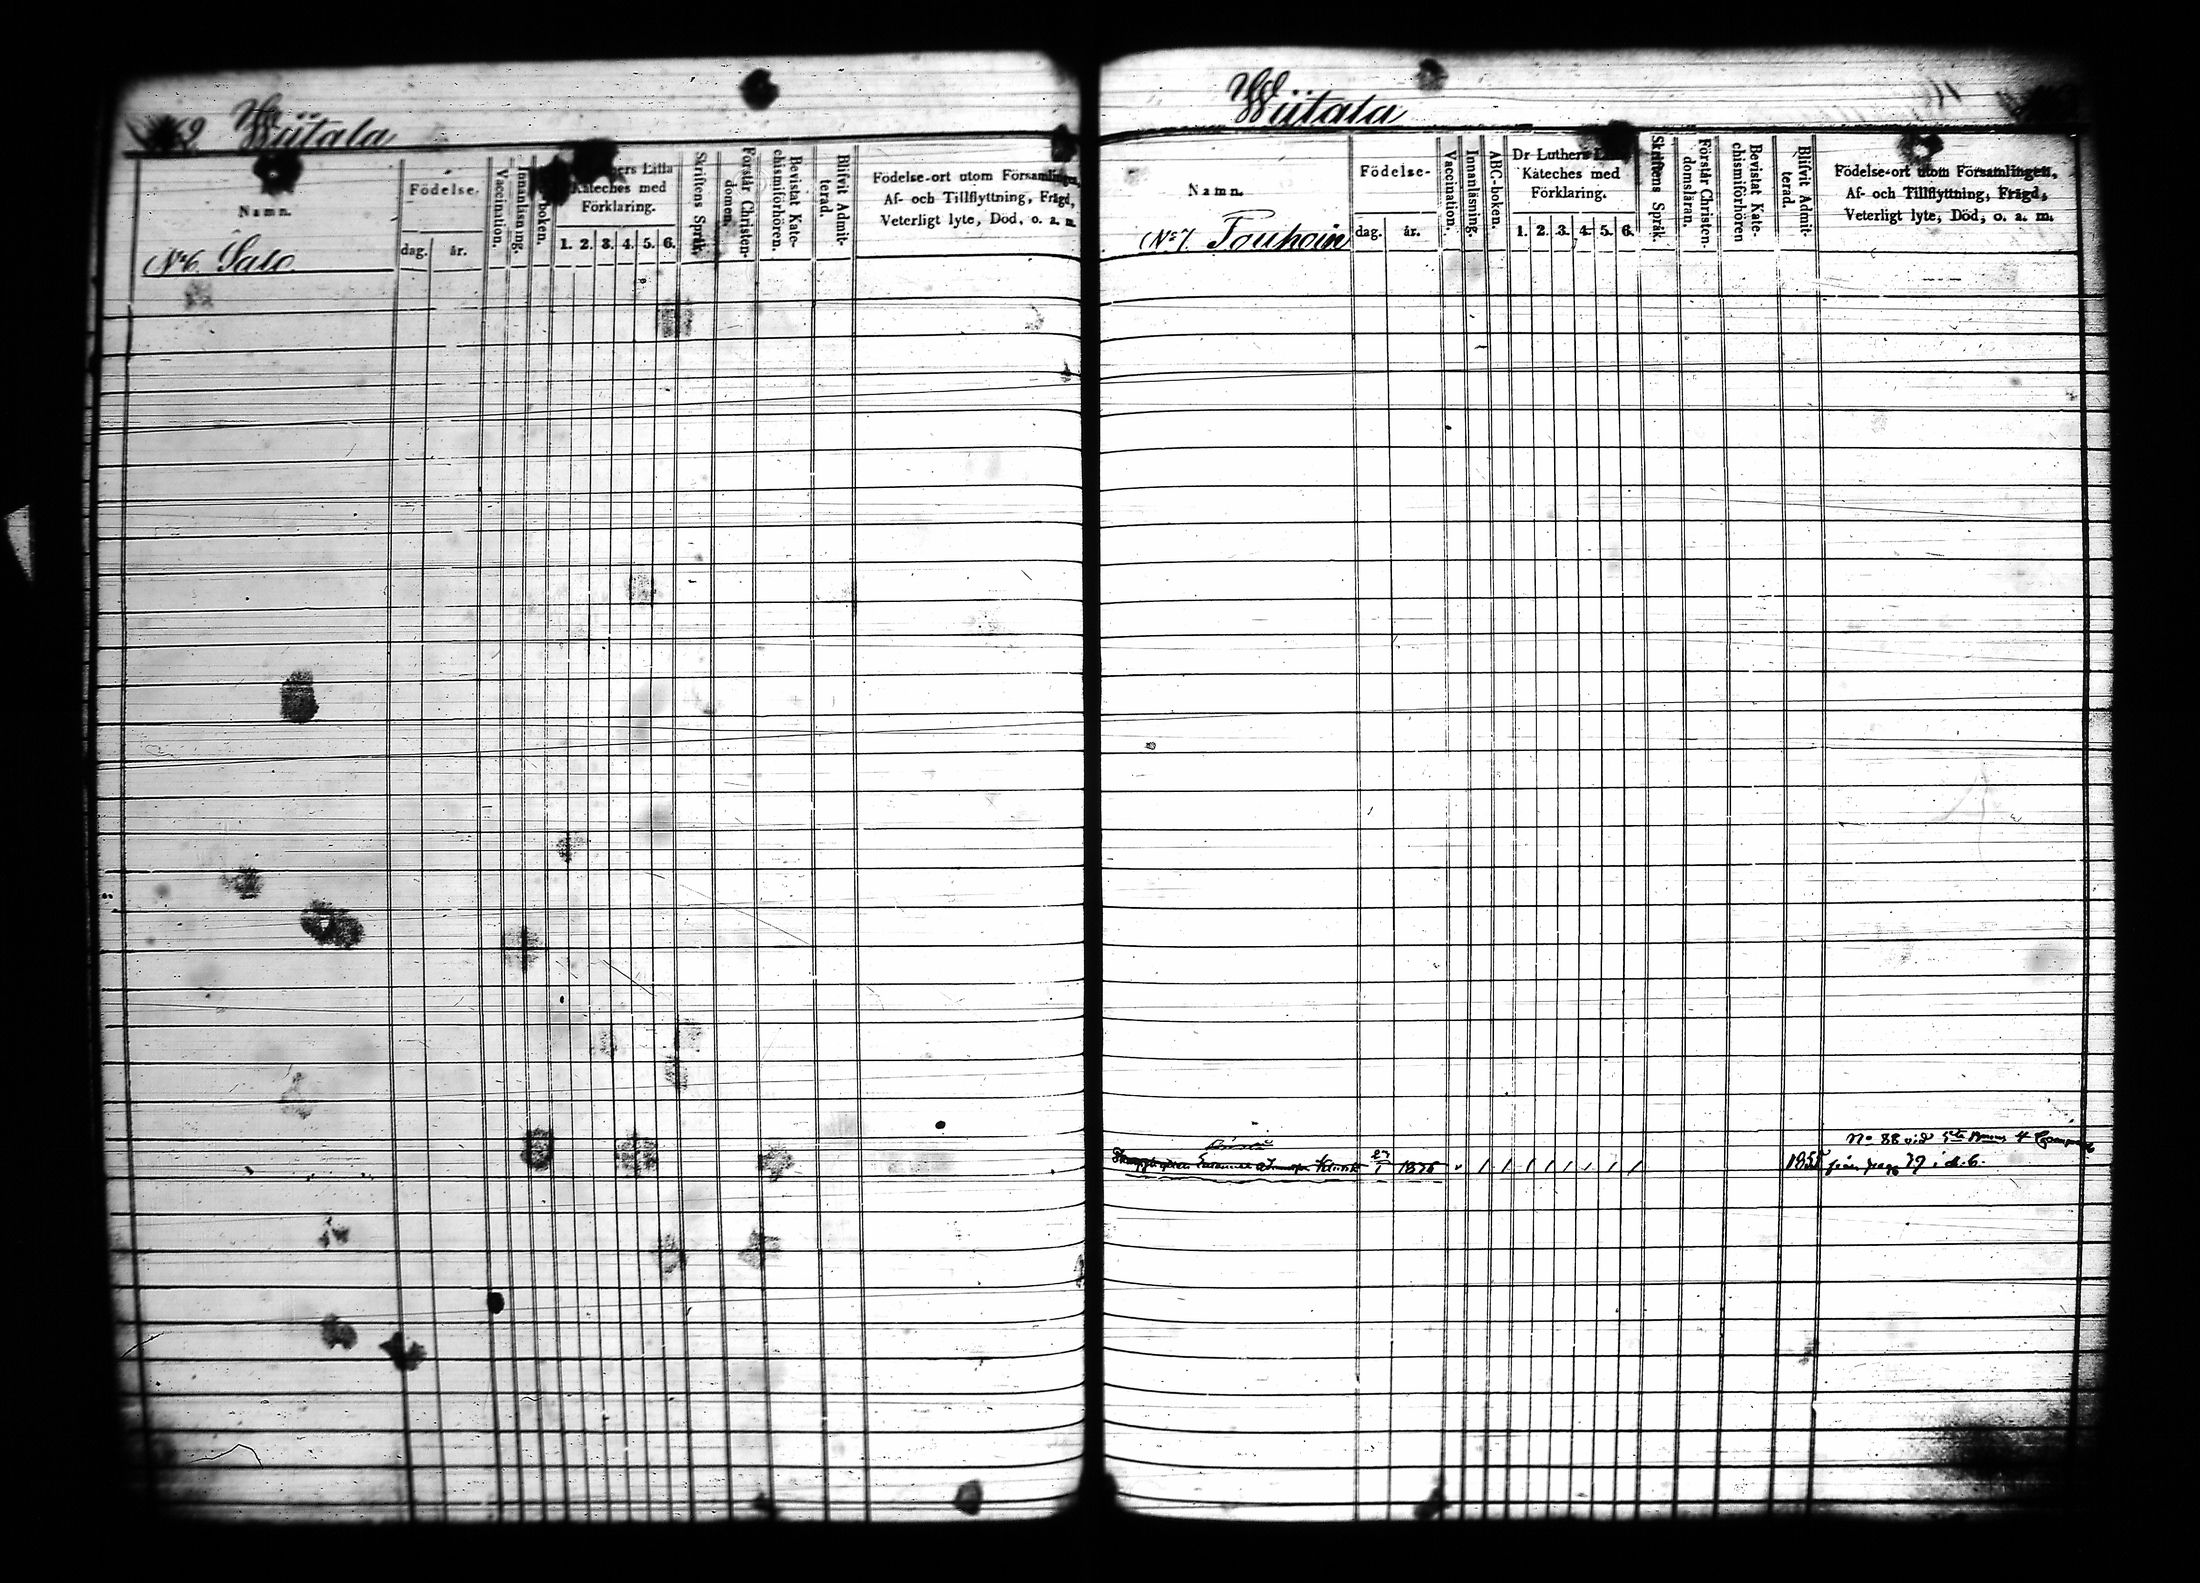 Wiitala
Namn.
Födelse-
dag. år.
Vaccination.
Innanläsning.
boken.
Lilla
Kateches med
Förklaring.
1. 2. 3. 4. 5. 6.
Skriftens Språk.
Förstår Christen-
domen.
Bevistat Kate-
chismiförhören.
Blifvit Admit-
terad.
Födelse-ort utom Församlingen,
Af- och Tillflyttning, Frägd,
Veterligt lyte, Död, o. a. m.
No 6. Salo
Wiitala
Namn.
Födelse-
dag. år.
Vaccination.
Innanläsning.
ABC-boken.
Dr Luthers
Kateches med
Förklaring.
1. 2. 3. 4. 5. 6.
Skriftens Språk.
Förstår Christen-
domsläran.
Bevistat Kate-
chismiförhören
Blifvit Admit-
terad.
Födelse-ort utom Församlingen,
Af- och Tillflyttning, Frägd,
Veterligt lyte, Död, o. a. m.
No 7.
No 88 vid
27
1
i d. b.